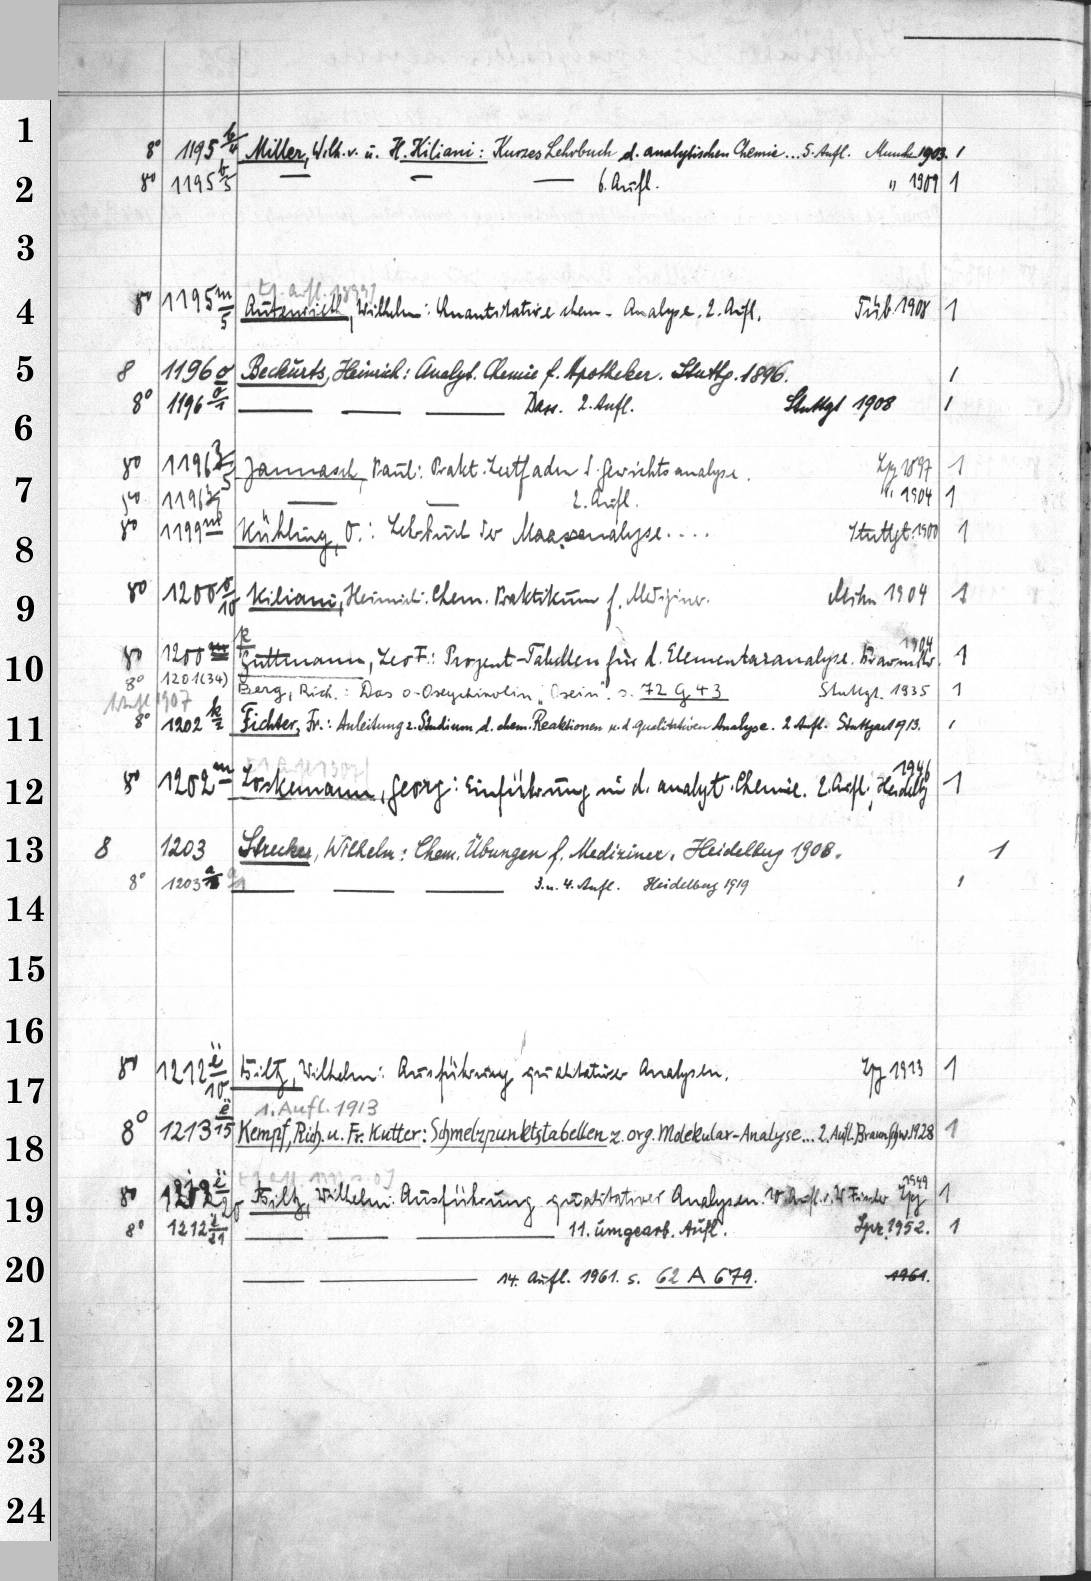 1
8° 1195 b/4 Miller, Wilh. v. u. H. Kiliani: Kurzes Lehrbuch d. analytischen Chemie... 5. Aufl. 1903. 1
2
8° 1195 b/5 — — — 6. Aufl. " 1909 1
3
4
8° 1195 m/5 Autenrieth, Wilhelm: Quantitative chem. Analyse. 2. Aufl. Tüb. 1908 1
5
8 1196 o Beckurts, Heinrich: Analyt. Chemie f. Apotheker. Stuttg. 1896. 1
8° 1196 o/1 — — — Dass. 2. Aufl. Stuttgt 1908 1
6
8° 1196 Jannasch, Paul: Prakt. Leitfaden d. Gewichtsanalyse. Lpg 1897 1
7
8° 1196 — — 2. Aufl. " 1904 1
8° 1199 m Kühling, O.: Lehrbuch der Maassanalyse.... Stuttgt. 1900 1
8
9
8° 1200 o/10 Kiliani, Heinrich: Chem. Praktikum f. Mediziner. Mchn 1904 1
10
8° 1200 Guttmann, Leo F.: Prozent-Tabellen für d. Elementaranalyse. 1904 1
8° 1201(34) Berg, Rich.: Das o-Oxychinolin „Oxin". s. 72 G 43 Stuttgt. 1935 1
1. Aufl 1907
11
8° 1202 k/2 Fichter, Fr.: Anleitung z. Studium d. chem. Reaktionen u. d. qualitativen Analyse. 2 Aufl. Stuttgart 1913. 1
12
8° 1202 m Lockemann, Georg: Einführung in d. analyt. Chemie. 2. Aufl. Heidelbg 1946 1
13
8 1203 Strecker, Wilhelm: Chem. Übungen f. Mediziner. Heidelberg 1908. 1
8° 1203 a — — — 3. u. 4. Aufl. Heidelberg 1919 1
14
15
16
17
8° 1212 ë/10 Biltz, Wilhelm: Ausführung qualitativer Analysen. Lpg 1913 1
1. Aufl. 1913
18
8° 1213 ë/15 Kempf, Rich. u. Fr. Kutter: Schmelzpunktstabellen z. org. Molekular-Analyse... 2. Aufl. Braunschw. 1928 1
19
8° 1212 ë/20 Biltz, Wilhelm: Ausführung qualitativer Analysen. Lpg 1949 1
8° 1212 ë/21 — — — 11. umgearb. Aufl. Lpz. 1952. 1
20
— — 14. Aufl. 1961. s. 62 A 679. 1961.
21
22
23
24